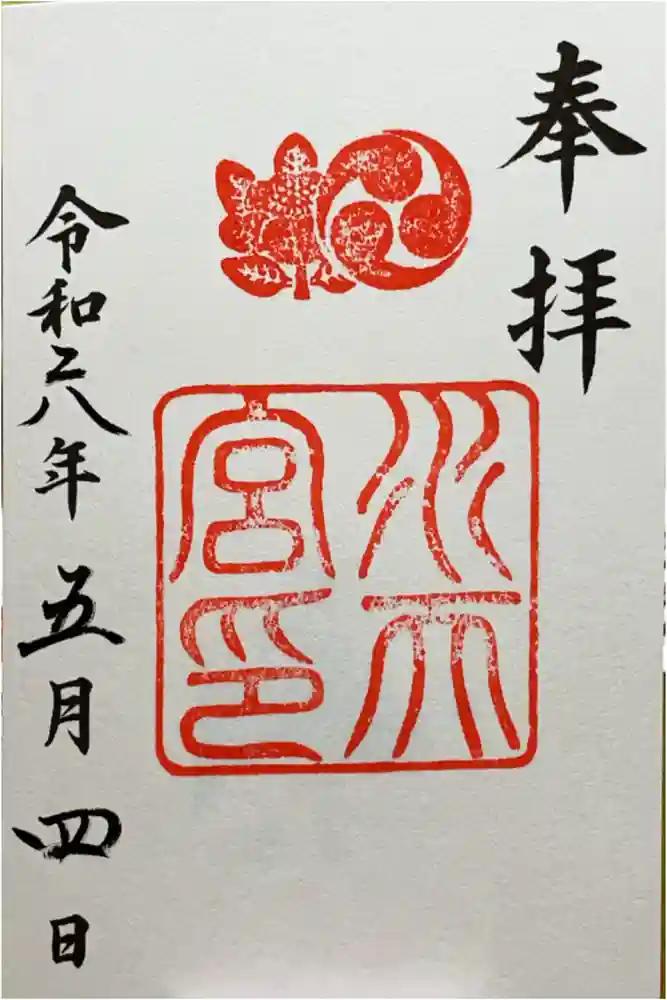 奉拝
水天
宮印
令和六年五月四日